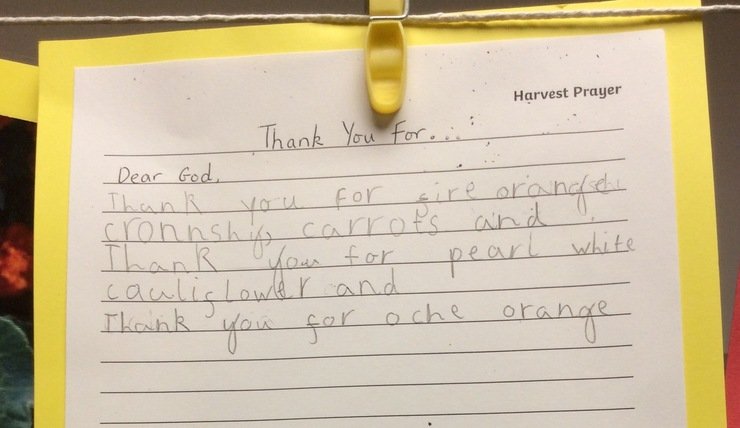 Harvest Prayer
Thank You For...
Dear God,
Thank you for fire orange
cronnship carrots and
Thank you for pearl white
cauliglower and
Thank you for oche orange